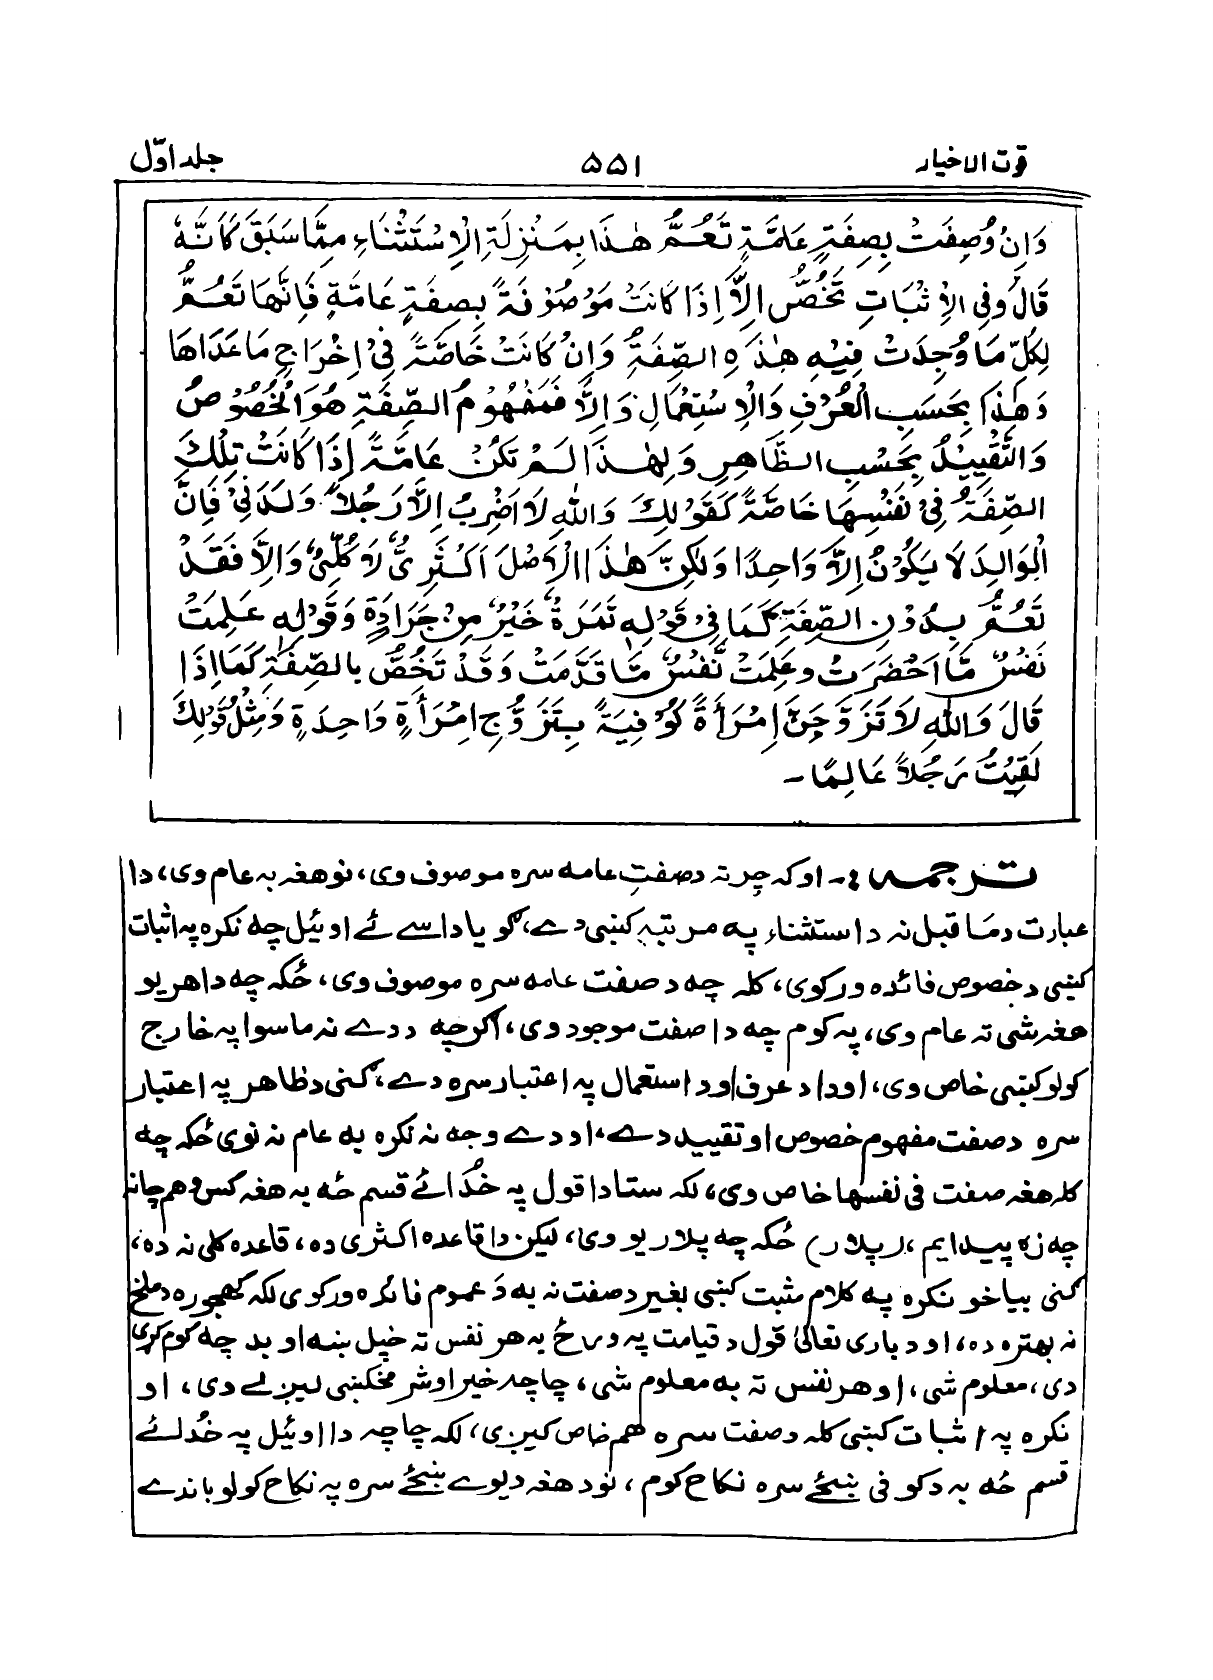 قوت الاخیار ۵۵۱ جلد اوّل
وَاِنْ وُصِفَتْ بِصِفَةٍ عَامَّةٍ تَعُمُّ هٰذَا بِمَنْزِلَةِ الْاِسْتَثْنَاءِ مِمَّا سَبَقَ كَاَنَّهٗ
قَالَ وَفِي الْاِثْبَاتِ تَخُصُّ اِلَّا اِذَا كَانَتْ مَوْصُوْفَةً بِصِفَةٍ عَامَّةٍ فَاِنَّهَا تَعُمُّ
لِكُلِّ مَا وُجِدَتْ فِيْهِ هٰذِهِ الصِّفَةُ وَاِنْ كَانَتْ خَاصَّةً فِيْ اِخْرَاجِ مَا عَدَاهَا
وَهٰذَا بِحَسَبِ الْعُرْفِ وَالْاِسْتِعْمَالِ وَاِلَّا فَمَفْهُوْمُ الصِّفَةِ هُوَ الْخُصُوْصُ
وَالتَّقْيِيْدُ بِحَسْبِ الظَّاهِرِ وَلِهٰذَا لَمْ تَكُنْ عَامَّةً اِذَا كَانَتْ تِلْكَ
الصِّفَةُ فِيْ نَفْسِهَا خَاصَّةً كَقَوْلِكَ وَاللّٰهِ لَا اَضْرِبُ اِلَّا رَجُلًا وَلَدَنِيْ فَاِنَّ
الْوَالِدَ لَا يَكُوْنُ اِلَّا وَاحِدًا وَلٰكِنَّ هٰذَا الْاَصْلَ اَكْثَرِىٌّ لَا كُلِّىٌّ وَاِلَّا فَقَدْ
تَعُمُّ بِدُوْنِ الصِّفَةِ كَمَا فِيْ قَوْلِهٖ تَمَرَةٌ خَيْرٌ مِنْ جَرَادَةٍ وَقَوْلِهٖ عَلِمَتْ
نَفْسٌ مَّا اَحْضَرَتْ وَعَلِمَتْ نَفْسٌ مَّا قَدَّمَتْ وَقَدْ تَخُصُّ بِالصِّفَةِ كَمَا اِذَا
قَالَ وَاللّٰهِ لَاَتَزَوَّجَنَّ اِمْرَأَةً كُوْفِيَةً بِتَزَوُّجِ امْرَأَةٍ وَاحِدَةٍ وَمِثْلُ قَوْلِكَ
لَقِيْتُ رَجُلًا عَالِمًا۔
ترجمہ :۔ او که چرته د صفتِ عامه سره موصوف وی، نو هغه به عام وی، دا
عبارت د ما قبل نه د استثناء په مرتبه کښی دے، گویا داسے ئے اوئیل چه نکره په اثبات
کښی د خصوص فائده ورکوی، کله چه د صفت عامه سره موصوف وی، ځکه چه دا هر یو
هغه شی ته عام وی، په کوم چه دا صفت موجود وی، اگرچه د دے نه ما سوا په خارج
کولو کښی خاص وی، او دا د عرف او د استعمال په اعتبار سره دے، گنی د ظاهر په اعتبار
سره د صفت مفهوم خصوص او تقیید دے، او د دے وجه نه نکره به عام نه نوی ځکه چه
کله هغه صفت فی نفسها خاص وی، لکه ستا دا قول په خدائے قسم څه به هغه کس وهم چا نه
چه زه پیدا یم، (پلار) ځکه چه پلار یو وی، لیکن دا قاعده اکثری ده، قاعده کلی نه ده،
گنی بیا خو نکره په کلام مثبت کښی بغیر د صفت نه به د عموم فائده ورکوی لکه کهجوره د ملخ
نه بهتره ده، او د باری تعالیٰ قول د قیامت په ورځ به هر نفس ته خپل ښه او بد چه کوم کړی
دی، معلوم شی، او هر نفس ته به معلوم شی، چا چه خیر او شر مخکښی لیږلے دی، او
نکره په اثبات کښی کله د صفت سره هم خاص کیږی، لکه چا چه دا اوئیل په خدائے
قسم څه به د کوفی ښځے سره نکاح کوم، نو د هغه د یوے ښځے سره په نکاح کولو باندے